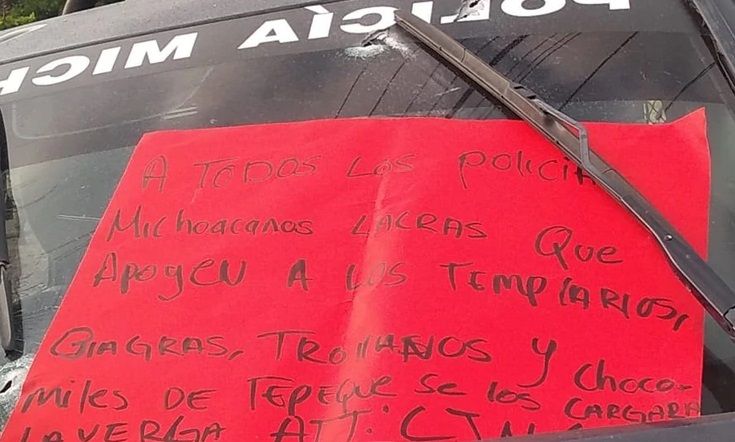 POLICÍA MICH
A TODOS LOS POLICIA
MICHOACANOS LACRAS QUE
APOYEN A LOS TEMPLARIOS,
GIAGRAS, TROYANOS Y CHOCO-
MILES DE TEPEQUE SE LOS CARGARA
LA VERGA ATT: CJNG